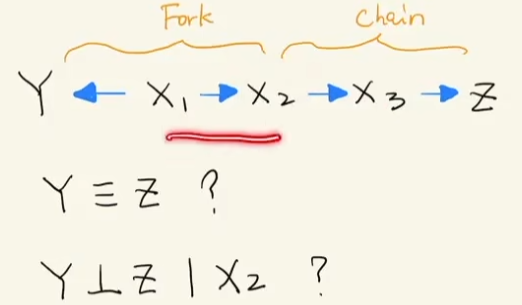 Fork chain
Y ← X₁ → X₂ → X₃ → Z
Y ≡ Z ?
Y ⊥ Z | X₂ ?